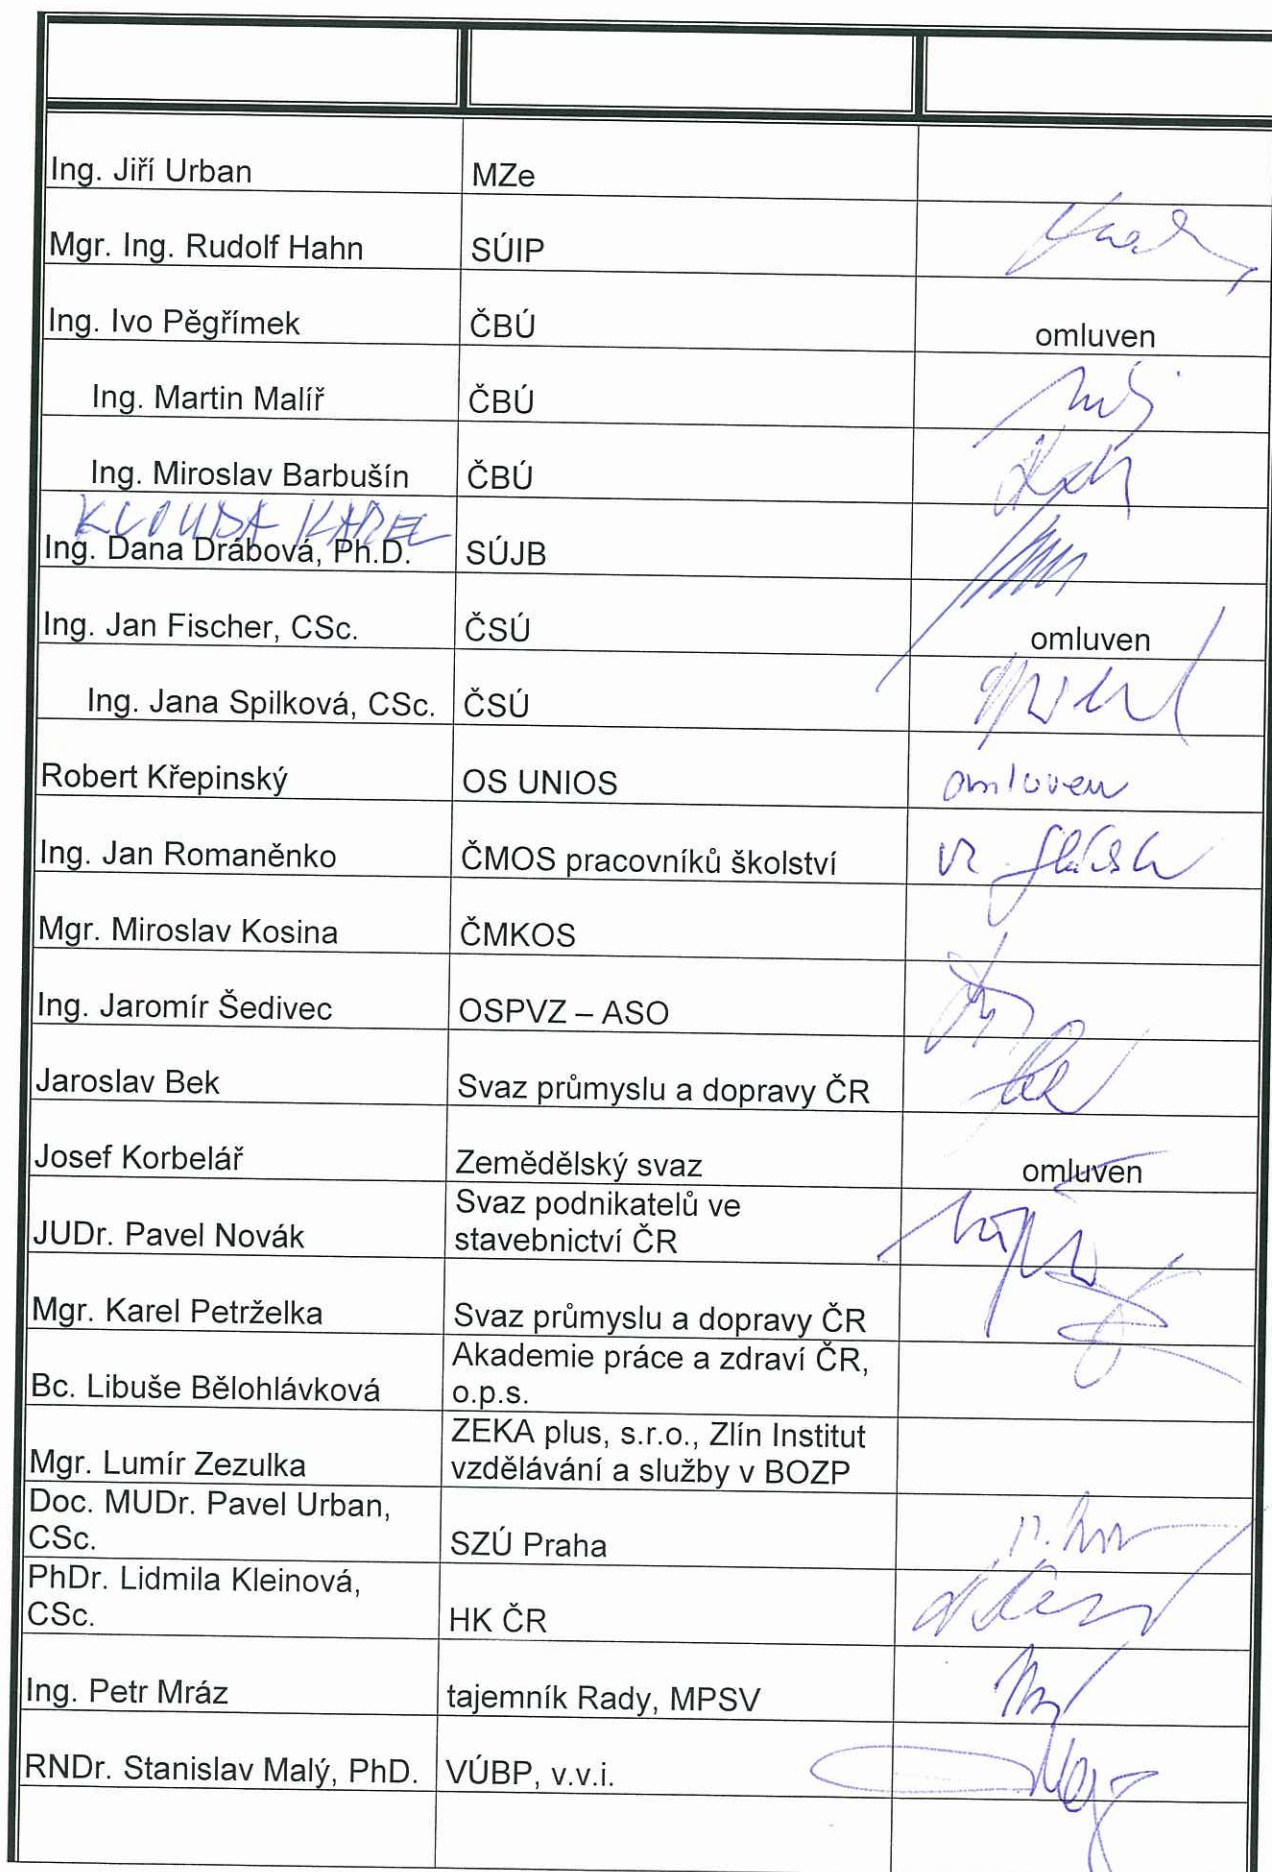 Ing. Jiří Urban MZe
Mgr. Ing. Rudolf Hahn SÚIP
Ing. Ivo Pěgřímek ČBÚ omluven
Ing. Martin Malíř ČBÚ
Ing. Miroslav Barbušín ČBÚ
KLOUDA KAREL
Ing. Dana Drábová, Ph.D. SÚJB
Ing. Jan Fischer, CSc. ČSÚ omluven
Ing. Jana Spilková, CSc. ČSÚ
Robert Křepinský OS UNIOS omluven
Ing. Jan Romaněnko ČMOS pracovníků školství
Mgr. Miroslav Kosina ČMKOS
Ing. Jaromír Šedivec OSPVZ – ASO
Jaroslav Bek Svaz průmyslu a dopravy ČR
Josef Korbelář Zemědělský svaz omluven
Svaz podnikatelů ve
JUDr. Pavel Novák stavebnictví ČR
Mgr. Karel Petrželka Svaz průmyslu a dopravy ČR
Akademie práce a zdraví ČR,
Bc. Libuše Bělohlávková o.p.s.
ZEKA plus, s.r.o., Zlín Institut
Mgr. Lumír Zezulka vzdělávání a služby v BOZP
Doc. MUDr. Pavel Urban,
CSc. SZÚ Praha
PhDr. Lidmila Kleinová,
CSc. HK ČR
Ing. Petr Mráz tajemník Rady, MPSV
RNDr. Stanislav Malý, PhD. VÚBP, v.v.i.